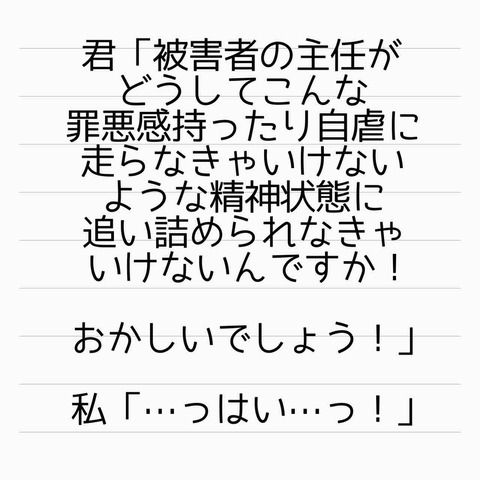 君「被害者の主任が
どうしてこんな
罪悪感持ったり自虐に
走らなきゃいけない
ような精神状態に
追い詰められなきゃ
いけないんですか！
おかしいでしょう！」
私「…っはい…っ！」